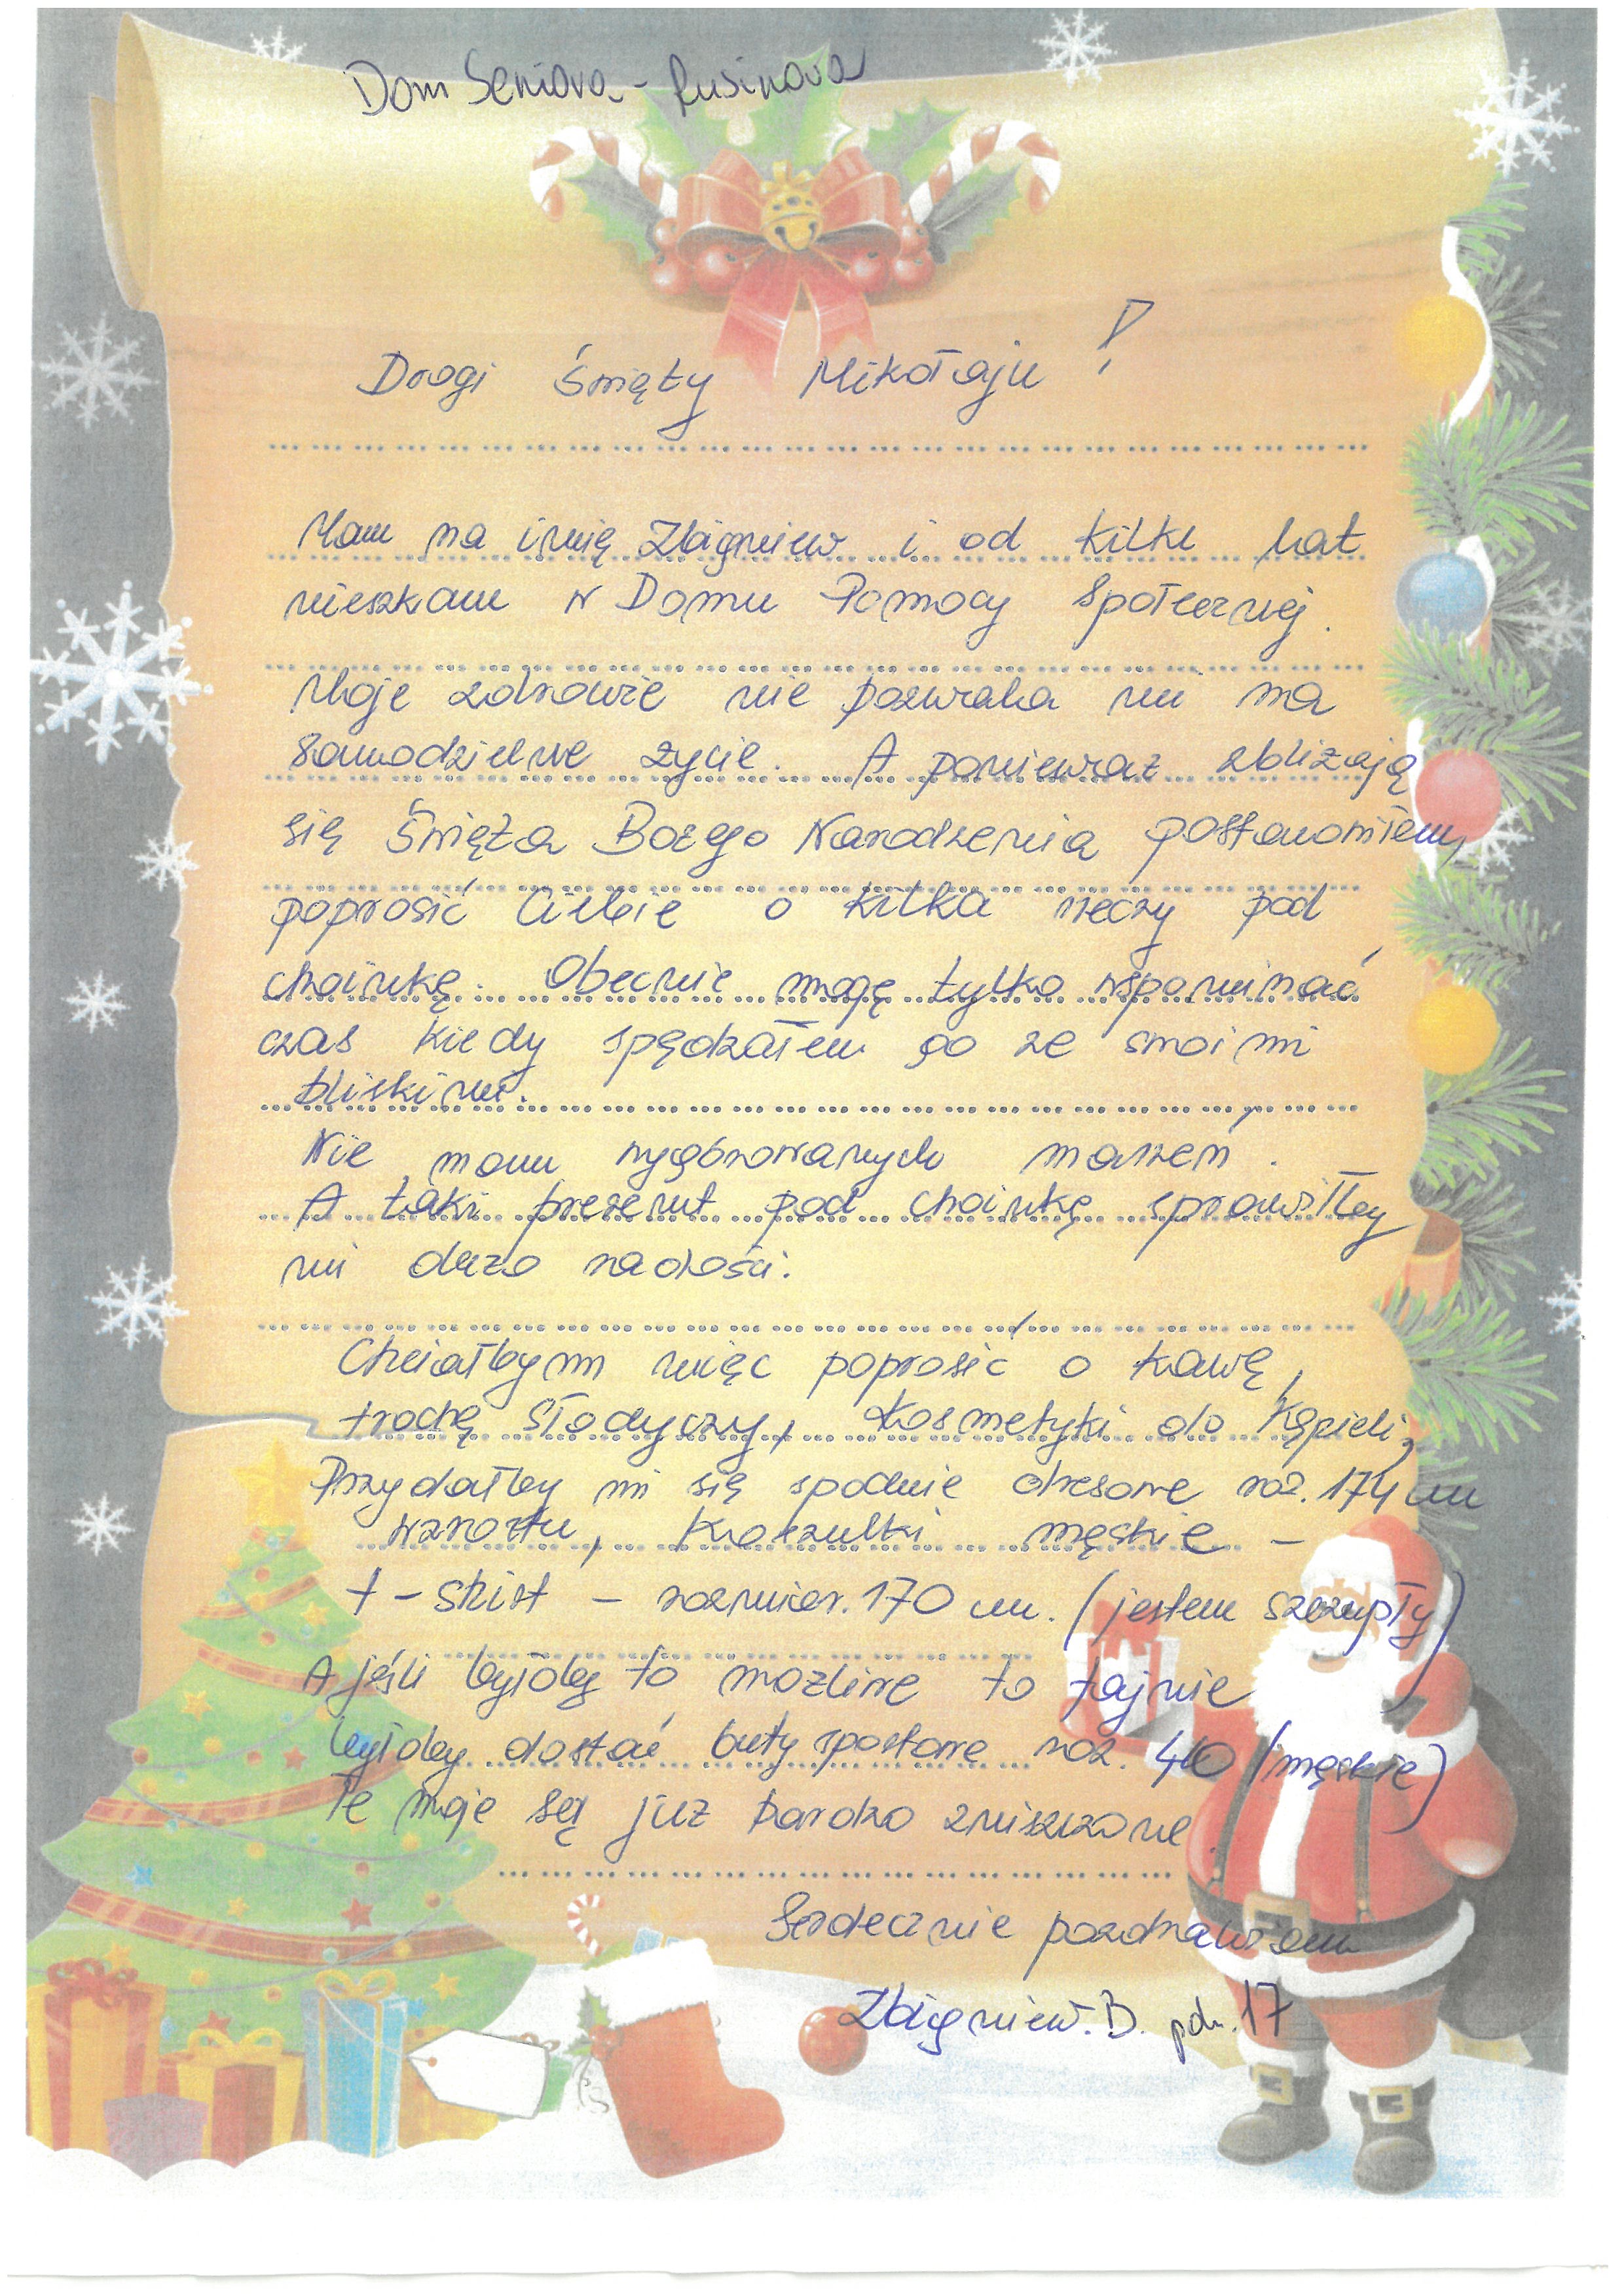 Dom Seniora - Rusinowa
Drogi Święty Mikołaju!
Mam na imię Zbigniew i od kilku lat
mieszkam w Domu Pomocy Społecznej.
Moje zdrowie nie pozwala mi na
samodzielne życie. A ponieważ zbliżają
się Święta Bożego Narodzenia postanowiłem
poprosić Ciebie o kilka rzeczy pod
choinkę. Obecnie mogę tylko wspominać
czas kiedy spędzałem go ze swoimi
bliskimi.
Nie mam wygórowanych marzeń.
A taki prezent pod choinkę sprawiłby
mi dużo radości.
Chciałbym więc poprosić o kawę,
trochę słodyczy, kosmetyki do kąpieli,
Przydałby mi się spodnie dresowe roz. 174 cm
wzrostu, koszulki męskie -
t-shirt - rozmiar. 170 cm. (jestem szczupły)
A jeśli byłoby to możliwe to fajnie
byłoby dostać buty sportowe roz. 40 (męskie)
Te moje są już bardzo zniszczone.
Serdecznie pozdrawiam
Zbigniew. B. pok. 17